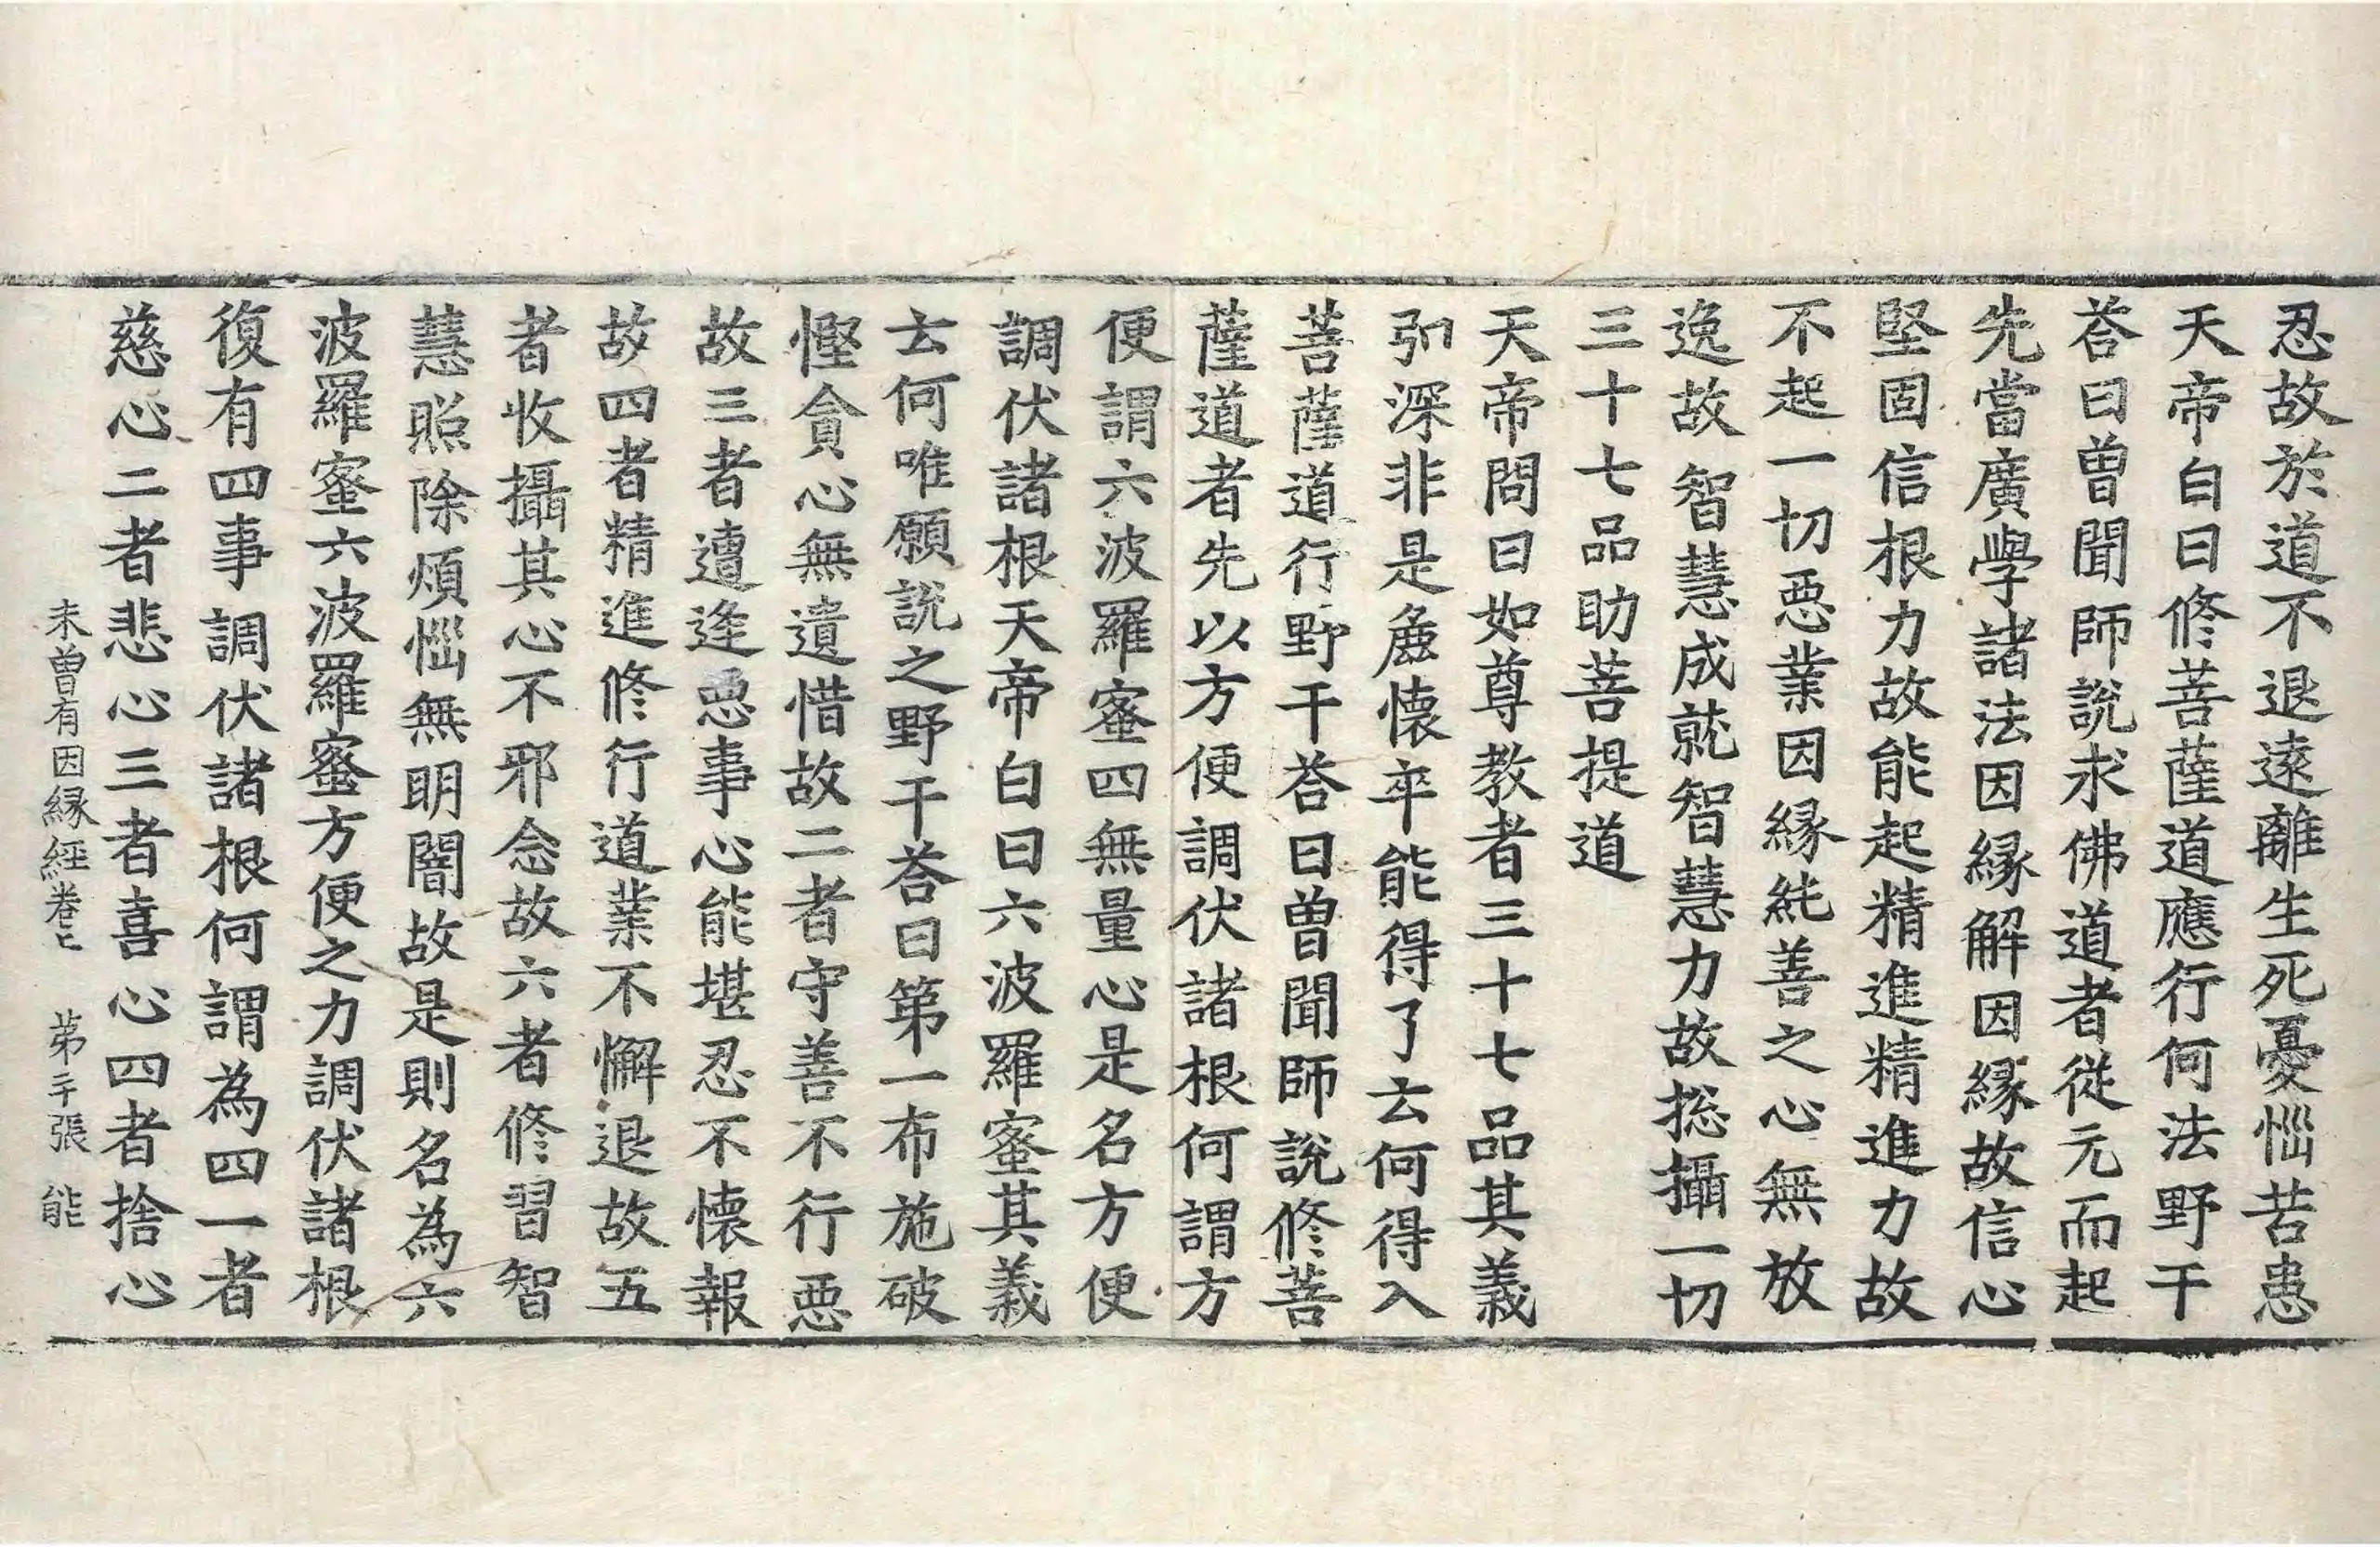 忍故於道不退遠離生死憂惱苦患
天帝白曰修菩薩道應行何法野干
荅曰曾聞師說求佛道者從元而起
先當廣學諸法因緣解因緣故信心
堅固信根力故能起精進精進力故
不起一切惡業因緣純善之心無放
逸故智慧成就智慧力故揔攝一切
三十七品助菩提道
天帝問曰如尊教者三十七品其義
弘深非是麁懷卒能得了云何得入
菩薩道行野干荅曰曾聞師說修菩
薩道者先以方便調伏諸根何謂方
便謂六波羅蜜四無量心是名方便
調伏諸根天帝白曰六波羅蜜其義
云何唯願說之野干荅曰第一布施破
慳貪心無遺惜故二者守善不行惡
故三者遭逢惡事心能堪忍不懷報
故四者精進修行道業不懈退故五
者收攝其心不邪念故六者修習智
慧照除煩惱無明闇故是則名為六
波羅蜜六波羅蜜方便之力調伏諸根
復有四事調伏諸根何謂為四一者
慈心二者悲心三者喜心四者捨心
未曾有因緣經卷上 苐张 能